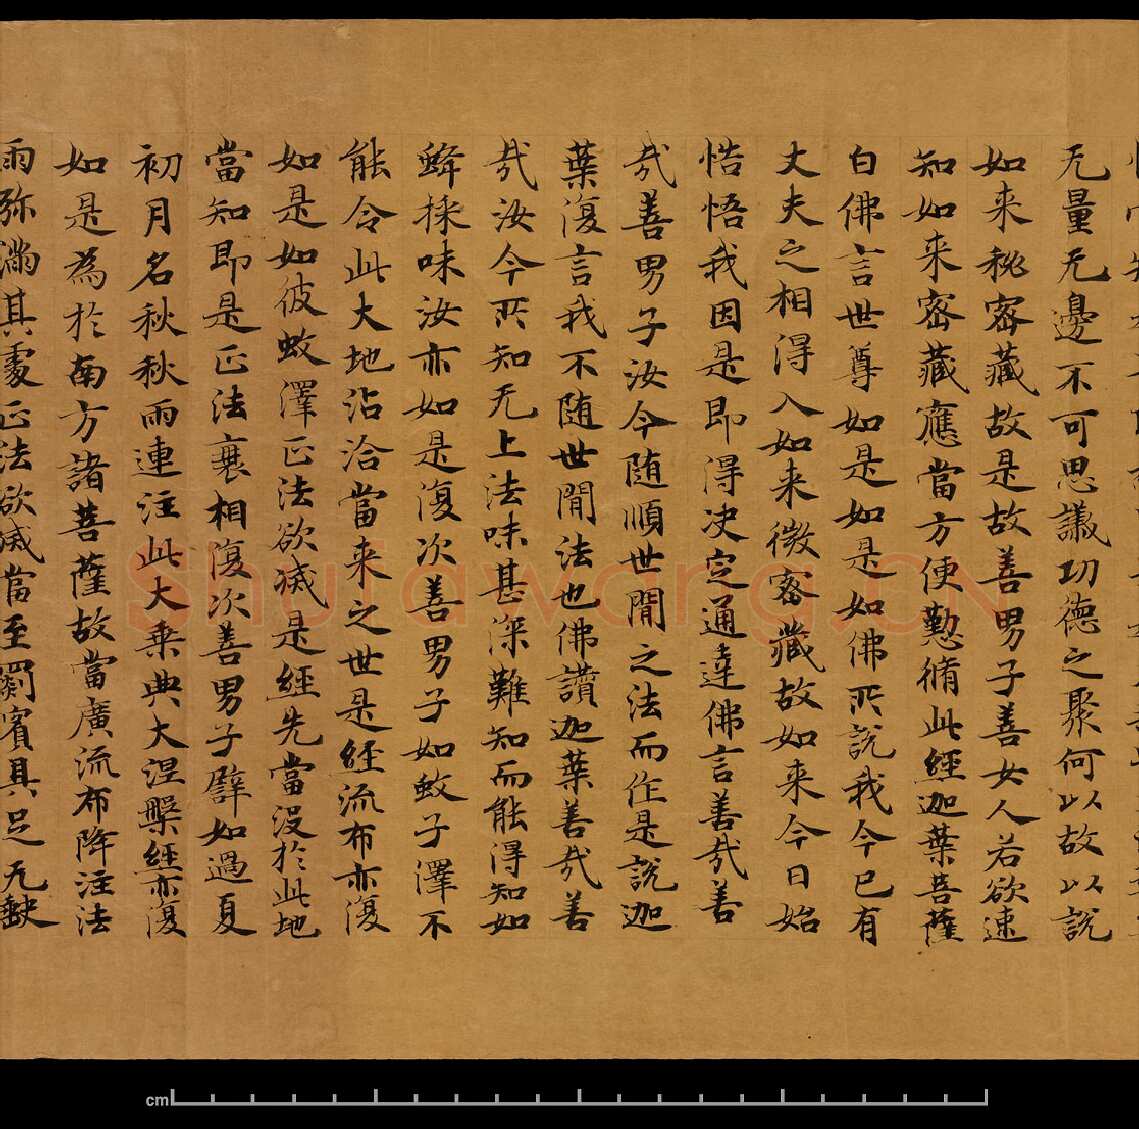 无量无邊不可思議功德之聚何以故以說
如来秘密藏故是故善男子善女人若欲速
知如来密藏應當方便勤脩此經迦葉菩薩
白佛言世尊如是如是如佛所說我今已有
丈夫之相得入如来微密藏故如来今日始
悟悟我因是即得决定通達佛言善哉善
哉善男子汝今随順世間之法而作是說迦
葉復言我不随世間法也佛讚迦葉善哉善
哉汝今所知无上法味甚深難知而能得知如
蜂採味汝亦如是復次善男子如蚊子澤不
能令此大地沾洽當来之世是經流布亦復
如是如彼蚊澤正法欲滅是經先當没於此地
當知即是正法衰相復次善男子譬如過夏
初月名秋秋雨連注此大乘典大涅槃經亦復
如是為於南方諸菩薩故當廣流布降注法
雨弥滿其處正法欲滅當至罽賓具足无缺
Shufawang.CN
cm